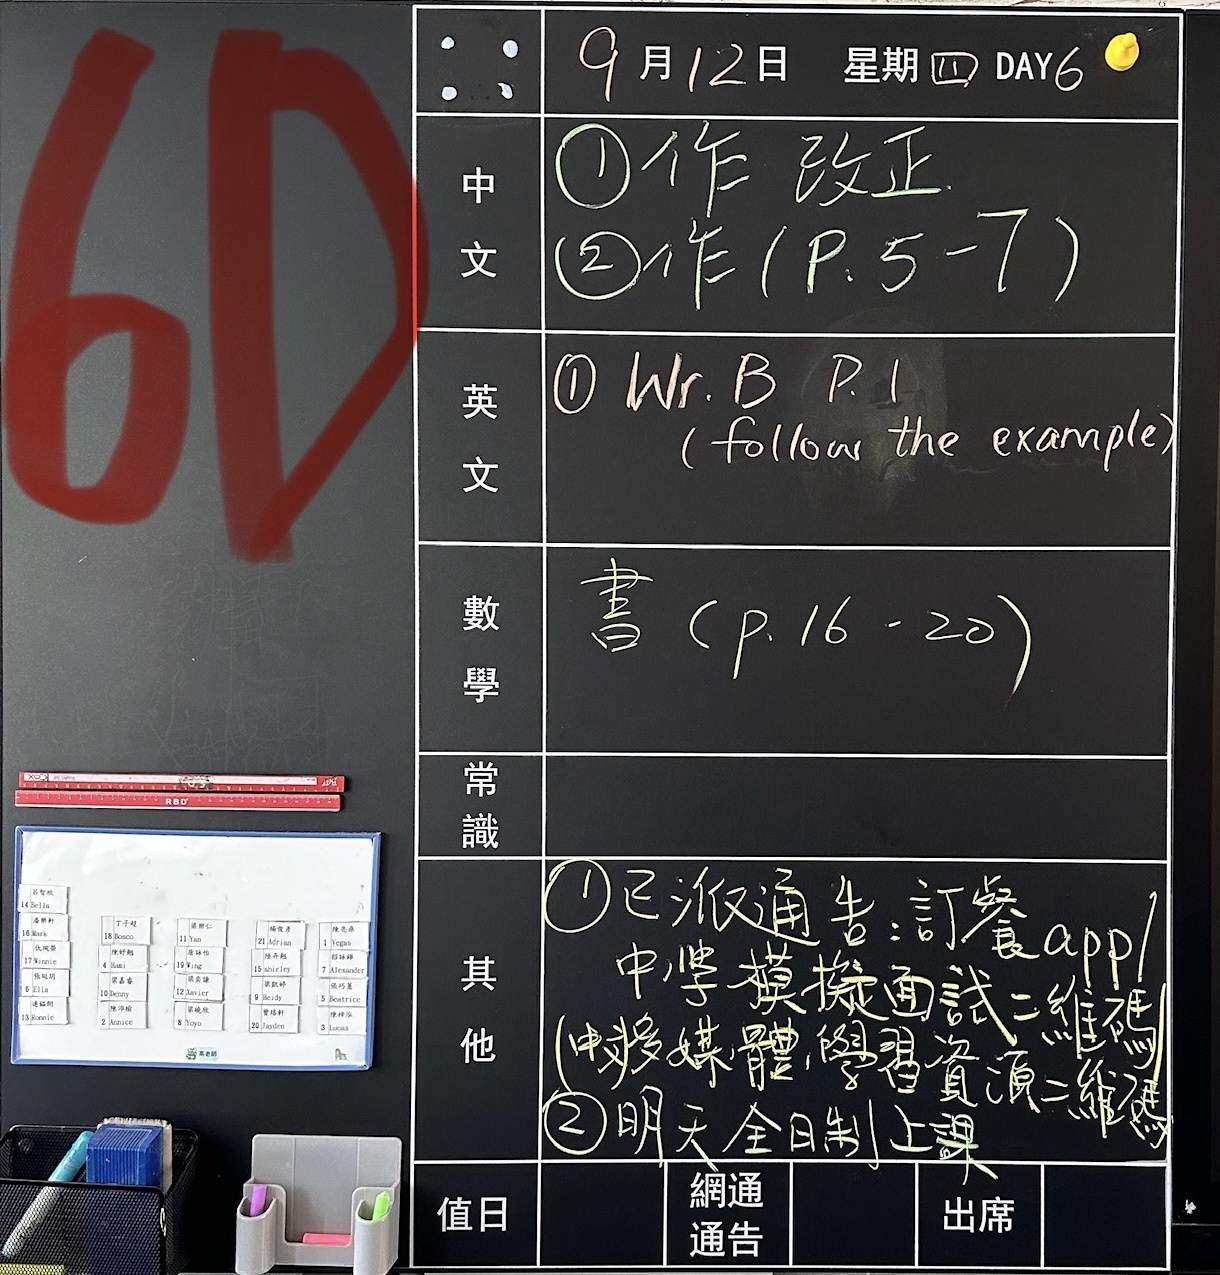 6D
9月12日 星期四 DAY6
中文
①作 改正
②作(P.5-7)
英文
① Wr. B P. 1
(follow the example)
數學
書(p.16-20)
常識
其他
①已派通告:訂餐app/
中學模擬面試二維碼/
(中多媒體學習資源二維碼
②明天全日制上課
值日
網通通告
出席
RBD
14 Bella
16 Mark
17 Winnie
6 Ella
13 Ronnie
18 Bosco
4 Hami
10 Denny
2 Annice
11 Yan
19 Wing
12 Xavier
8 Yoyo
21 Adrian
15 shirley
9 Heidy
20 Jayden
1 Vegas
7 Alexander
5 Beatrice
3 Lucas